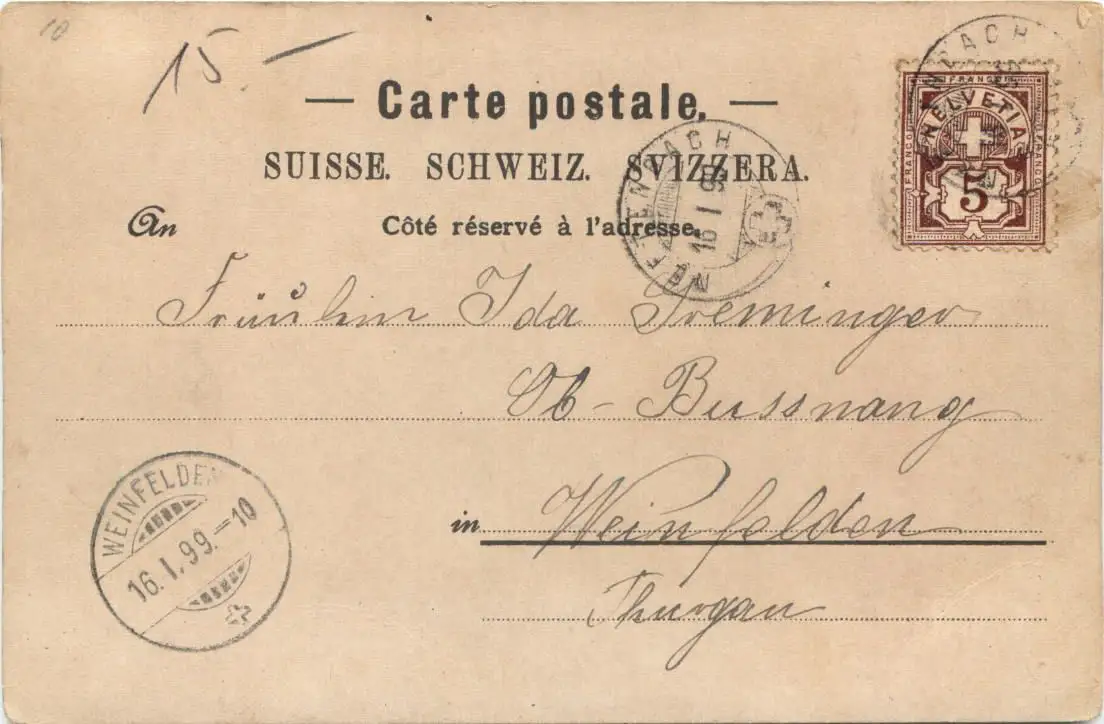 10
15 -
— Carte postale. —
SUISSE. SCHWEIZ. SVIZZERA.
An
Côté réservé à l'adresse.
FRANCO
HELVETIA
FRANCO
FRANCO
5
NEFTENBACH
16 I 99
Fräulein Ida Greminger
Ob - Bussnang
in Weinfelden
Thurgau
WEINFELDEN
16. I. 99. - 10